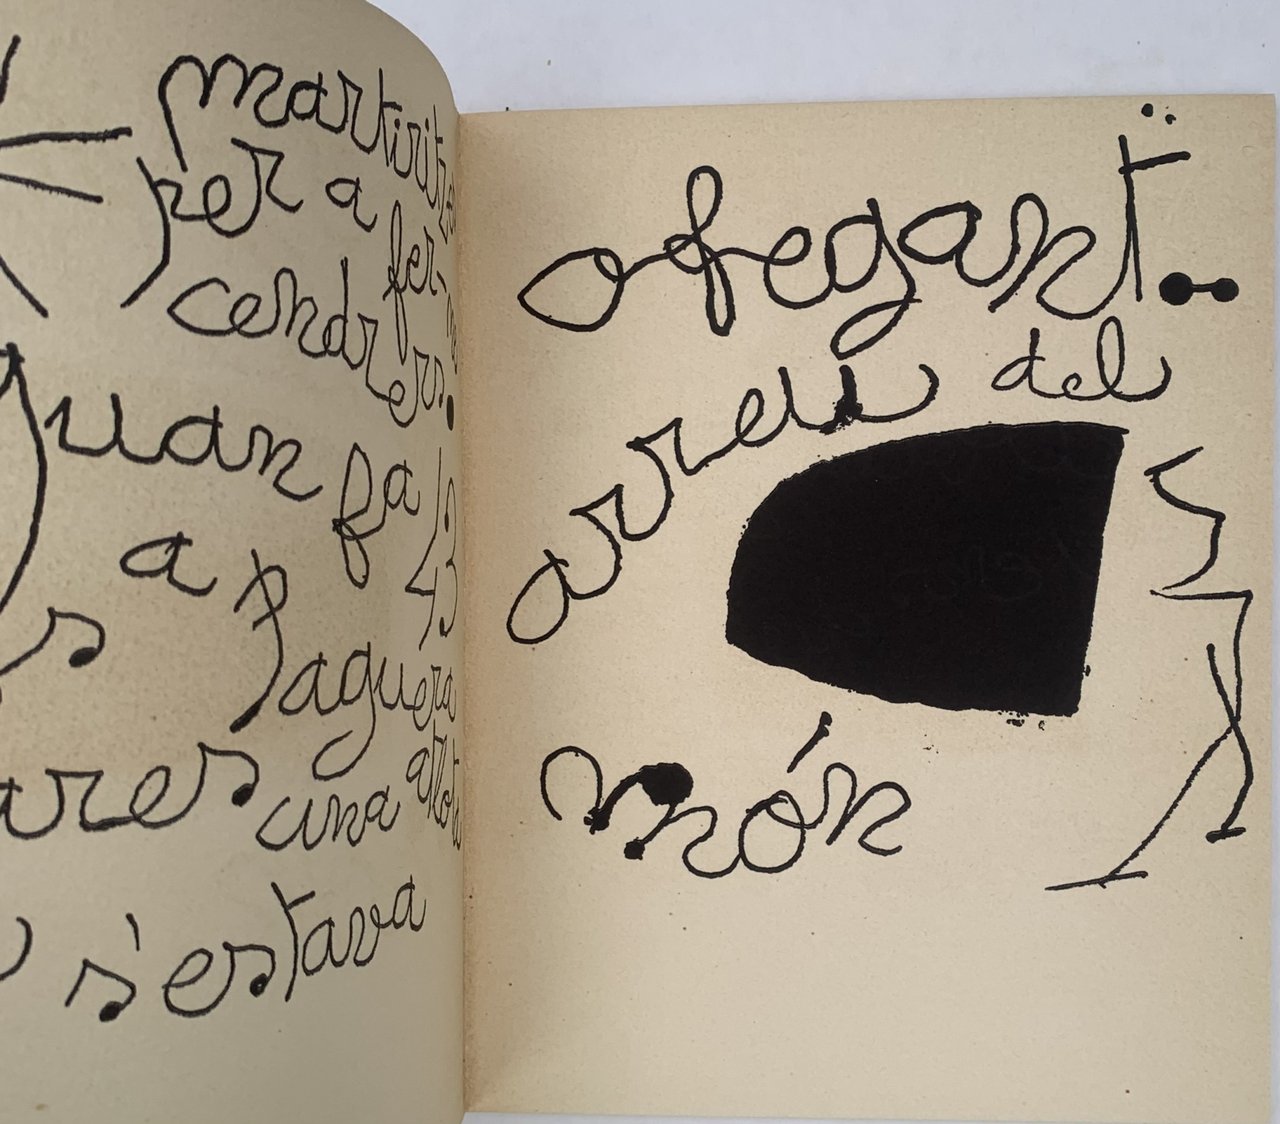 martiritz
per a
fer-
cendrers.
quan fa
43
a Paguera
ares una
s'estava
ofegant
arreu del
món